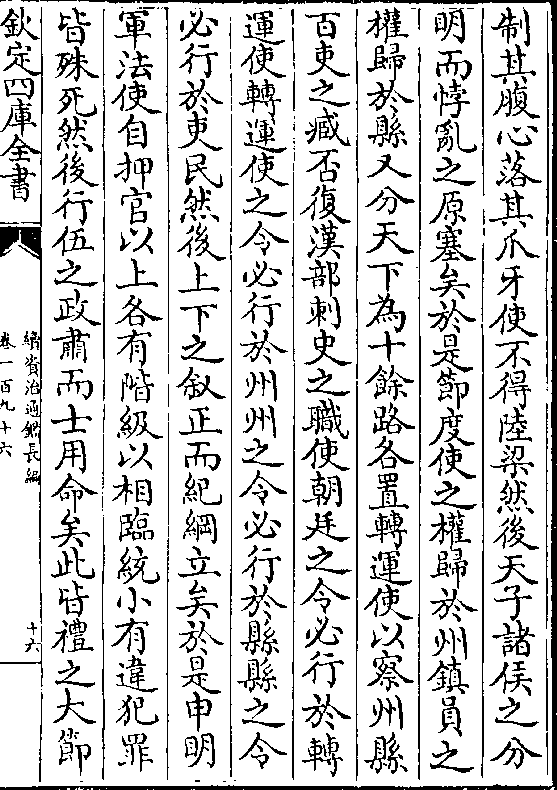 制其腹心落其爪牙使不得陸梁然後天子諸侯之分
明而悖亂之原塞矣於是節度使之權歸於州鎮員之
權歸於縣又分天下為十餘路各置轉運使以察州縣
百吏之臧否復漢部刺史之職使朝廷之令必行於轉
運使轉運使之令必行於州州之令必行於縣縣之令
必行於吏民然後上下之叙正而紀綱立矣於是申明
軍法使自押官以上各有階級以相臨統小有違犯罪
皆殊死然後行伍之政肅而士用命矣此皆禮之大節
欽定四庫全書
續資治通鑑長編
卷一百九十六
十六